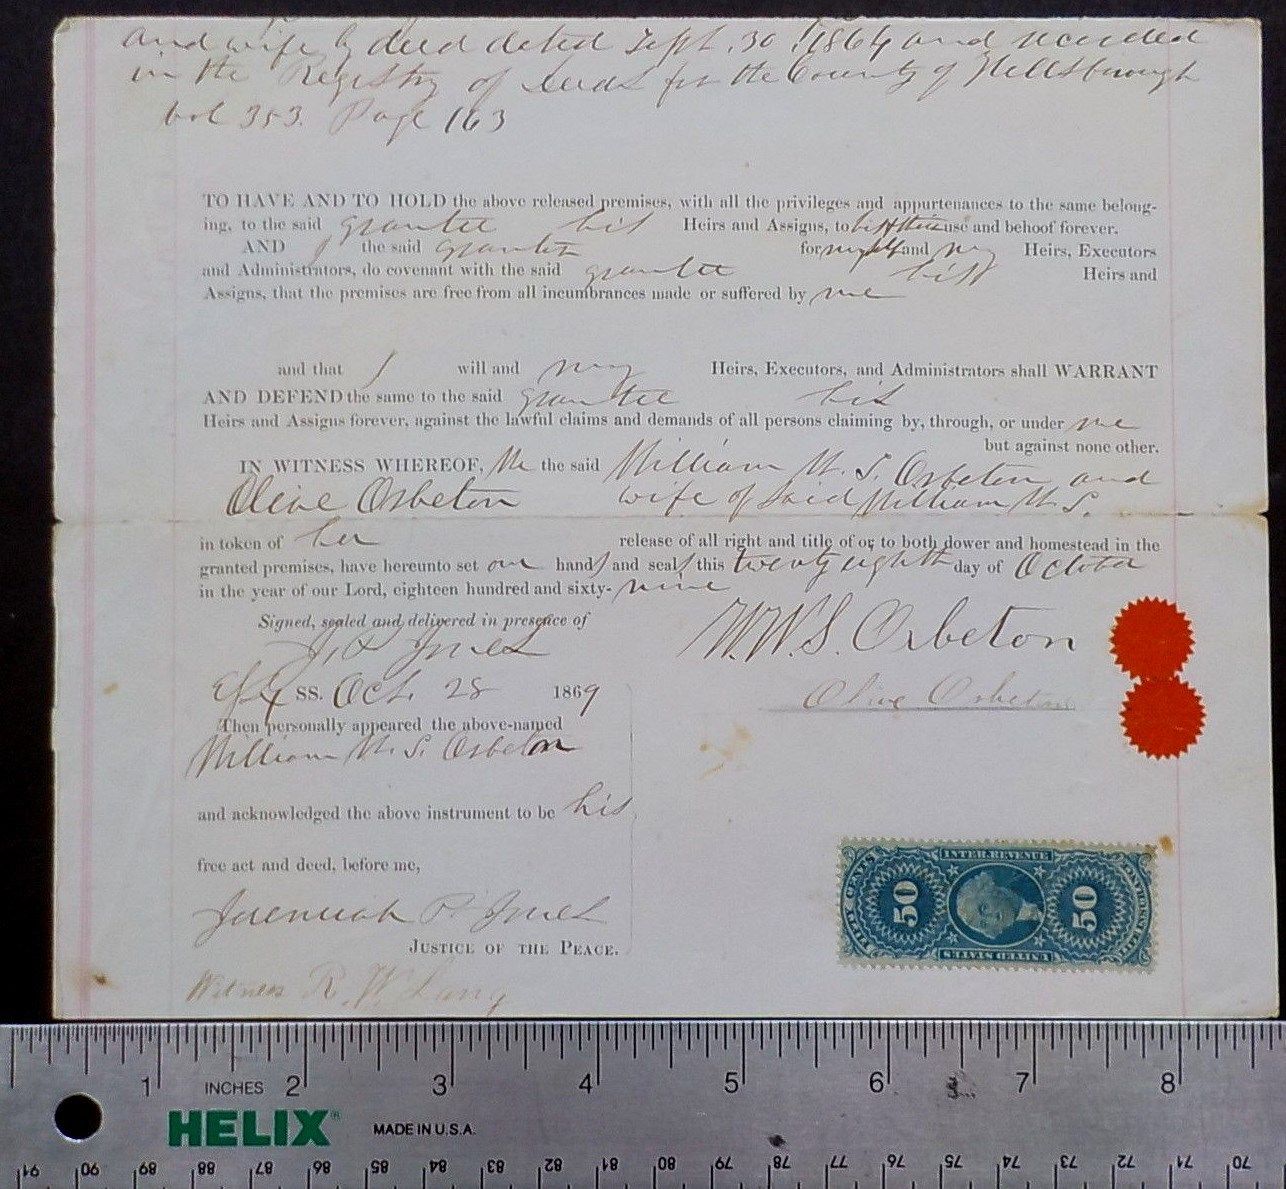 and wife by deed dated Sept. 30. 1864 and recorded
in the Registry of Deeds for the County of Hillsborough
vol 353. Page 163
TO HAVE AND TO HOLD the above released premises, with all the privileges and appurtenances to the same belong-
ing, to the said grantee his Heirs and Assigns, to use and behoof forever.
AND I the said grantor for myself and my Heirs, Executors
and Administrators, do covenant with the said grantee his Heirs and
Assigns, that the premises are free from all incumbrances made or suffered by me
and that I will and my Heirs, Executors, and Administrators shall WARRANT
AND DEFEND the same to the said grantee his
Heirs and Assigns forever, against the lawful claims and demands of all persons claiming by, through, or under me
but against none other.
IN WITNESS WHEREOF, We the said William W. S. Orbeton and
Olive Orbeton wife of said William W. S.
in token of her release of all right and title of or to both dower and homestead in the
granted premises, have hereunto set our hands and seals this twenty eighth day of October
in the year of our Lord, eighteen hundred and sixty-nine
Signed, sealed and delivered in presence of
W. W. S. Orbeton
Olive Orbeton
SS. Oct. 28 1869
Then personally appeared the above-named
William W. S. Orbeton
and acknowledged the above instrument to be his
free act and deed, before me,
Jeremiah P. Jones
JUSTICE OF THE PEACE.
Witness R. W. Lang
INTER. REVENUE
FIFTY CENTS
50
50
UNITED STATES
1 INCHES 2 3 4 5 6 7 8
HELIX® MADE IN U.S.A.
91 90 89 88 87 86 85 84 83 82 81 80 79 78 77 76 75 74 73 72 71 70